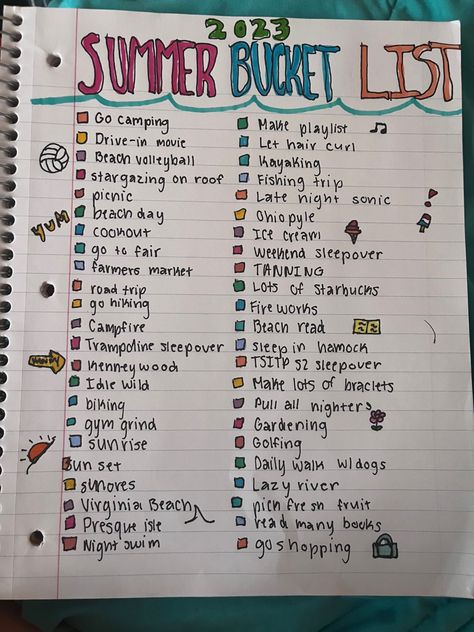 2023
SUMMER BUCKET LIST
Go camping
Drive-in movie
Beach volleyball
stargazing on roof
picnic
beach day
YUM
cookout
go to fair
farmers market
road trip
go hiking
Campfire
Trampoline sleepover
Kennywood
Idle wild
biking
gym grind
sunrise
sun set
smores
Virginia Beach
Presque isle
Night swim
Make playlist
Let hair curl
Kayaking
Fishing trip
Late night sonic
Ohiopyle
Ice cream
Weekend sleepover
TANNING
Lots of Starbucks
Fireworks
Beach read
sleep in hamock
TSITP S2 sleepover
Make lots of braclets
Pull all nighters
Gardening
Golfing
Daily walk w/ dogs
Lazy river
pick fresh fruit
read many books
go shopping